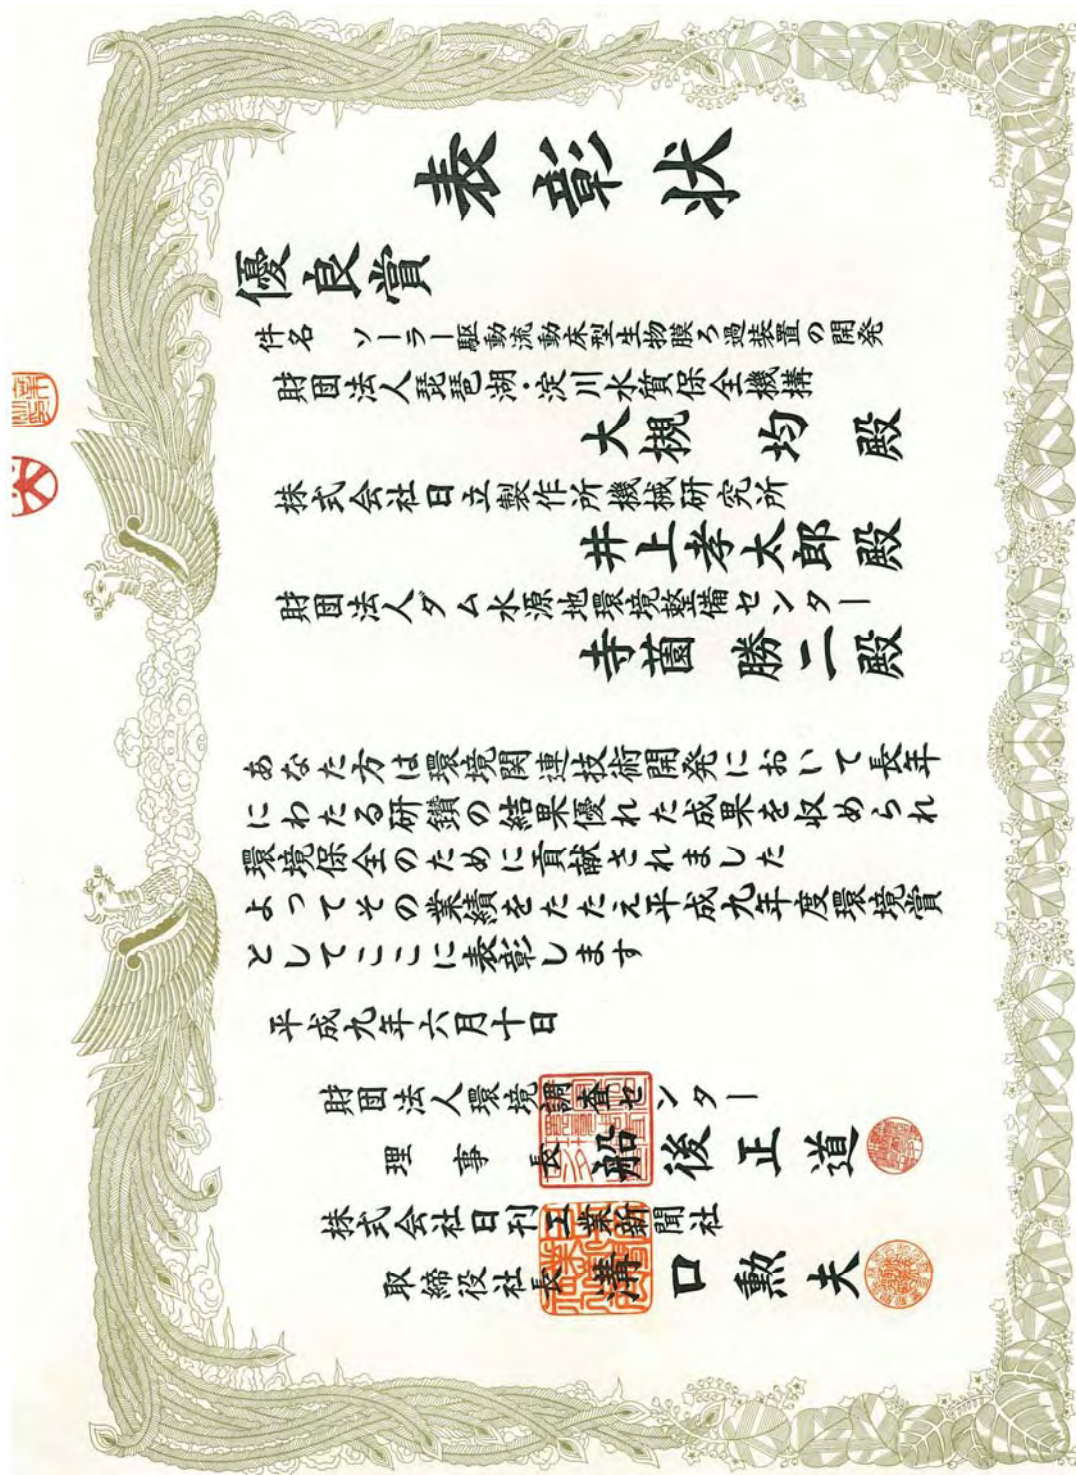 表彰状
優良賞
件名 ソーラー駆動流動床型生物膜ろ過装置の開発
財団法人琵琶湖・淀川水質保全機構
大槻 均 殿
株式会社日立製作所機械研究所
井上孝太郎殿
財団法人ダム水源地環境整備センター
寺薗 勝二殿
あなた方は環境関連技術開発において長年
にわたる研鑽の結果優れた成果を収められ
環境保全のために貢献されました
よってその業績をたたえ平成九年度環境賞
としてここに表彰します
平成九年六月十日
財団法人環境調査センター
理事長 船後正道
株式会社日刊工業新聞社
取締役社長 溝口勲夫